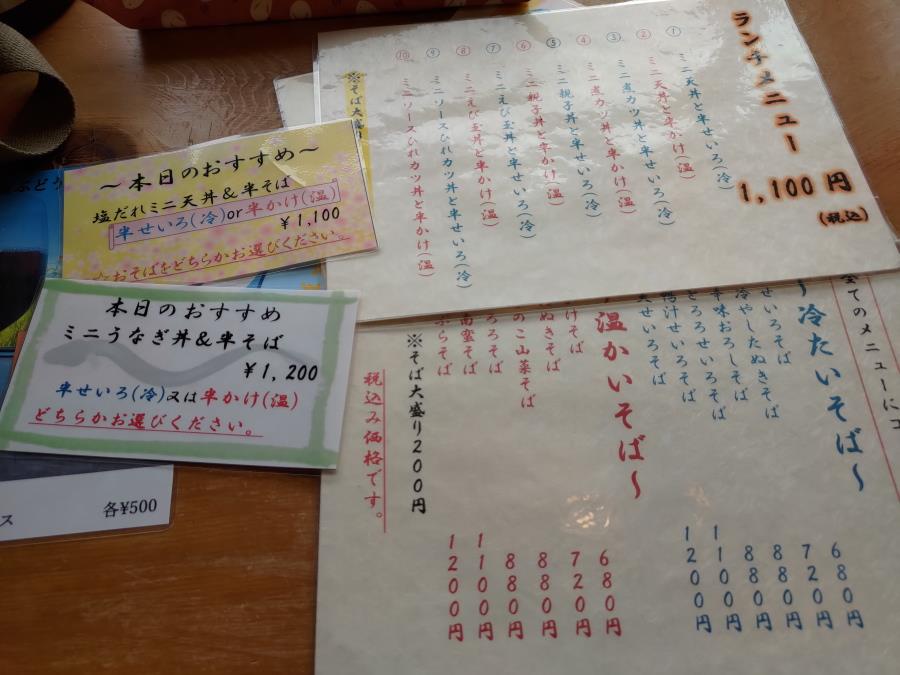 ランチメニュー
1,100円
(税込)
① ミニ天丼と半せいろ(冷)
② ミニ天丼と半かけ(温)
③ ミニ煮カツ丼と半せいろ(冷)
④ ミニ煮カツ丼と半かけ(温)
⑤ ミニ親子丼と半せいろ(冷)
⑥ ミニ親子丼と半かけ(温)
⑦ ミニえび玉丼と半せいろ(冷)
⑧ ミニえび玉丼と半かけ(温)
⑨ ミニソースひれカツ丼と半せいろ(冷)
⑩ ミニソースひれカツ丼と半かけ(温)
※そば大盛
～本日のおすすめ～
塩だれミニ天丼&半そば
半せいろ(冷)or半かけ(温)
¥1,100
☆おそばをどちらかお選びください。
本日のおすすめ
ミニうなぎ丼&半そば
¥1,200
半せいろ(冷)又は半かけ(温)
どちらかお選びください。
ス 各¥500
ぶどう
全てのメニューにコ
冷たいそば～
せいろそば 680円
冷やしたぬきそば 720円
辛味おろしそば 880円
とろろせいろそば 880円
鴨汁せいろそば 1100円
天せいろそば 1200円
温かいそば～
けそば 680円
ぬきそば 720円
のこ山菜そば 880円
ろろそば 880円
南蛮そば 1100円
ぷらそば 1200円
※そば大盛り200円
税込み価格です。